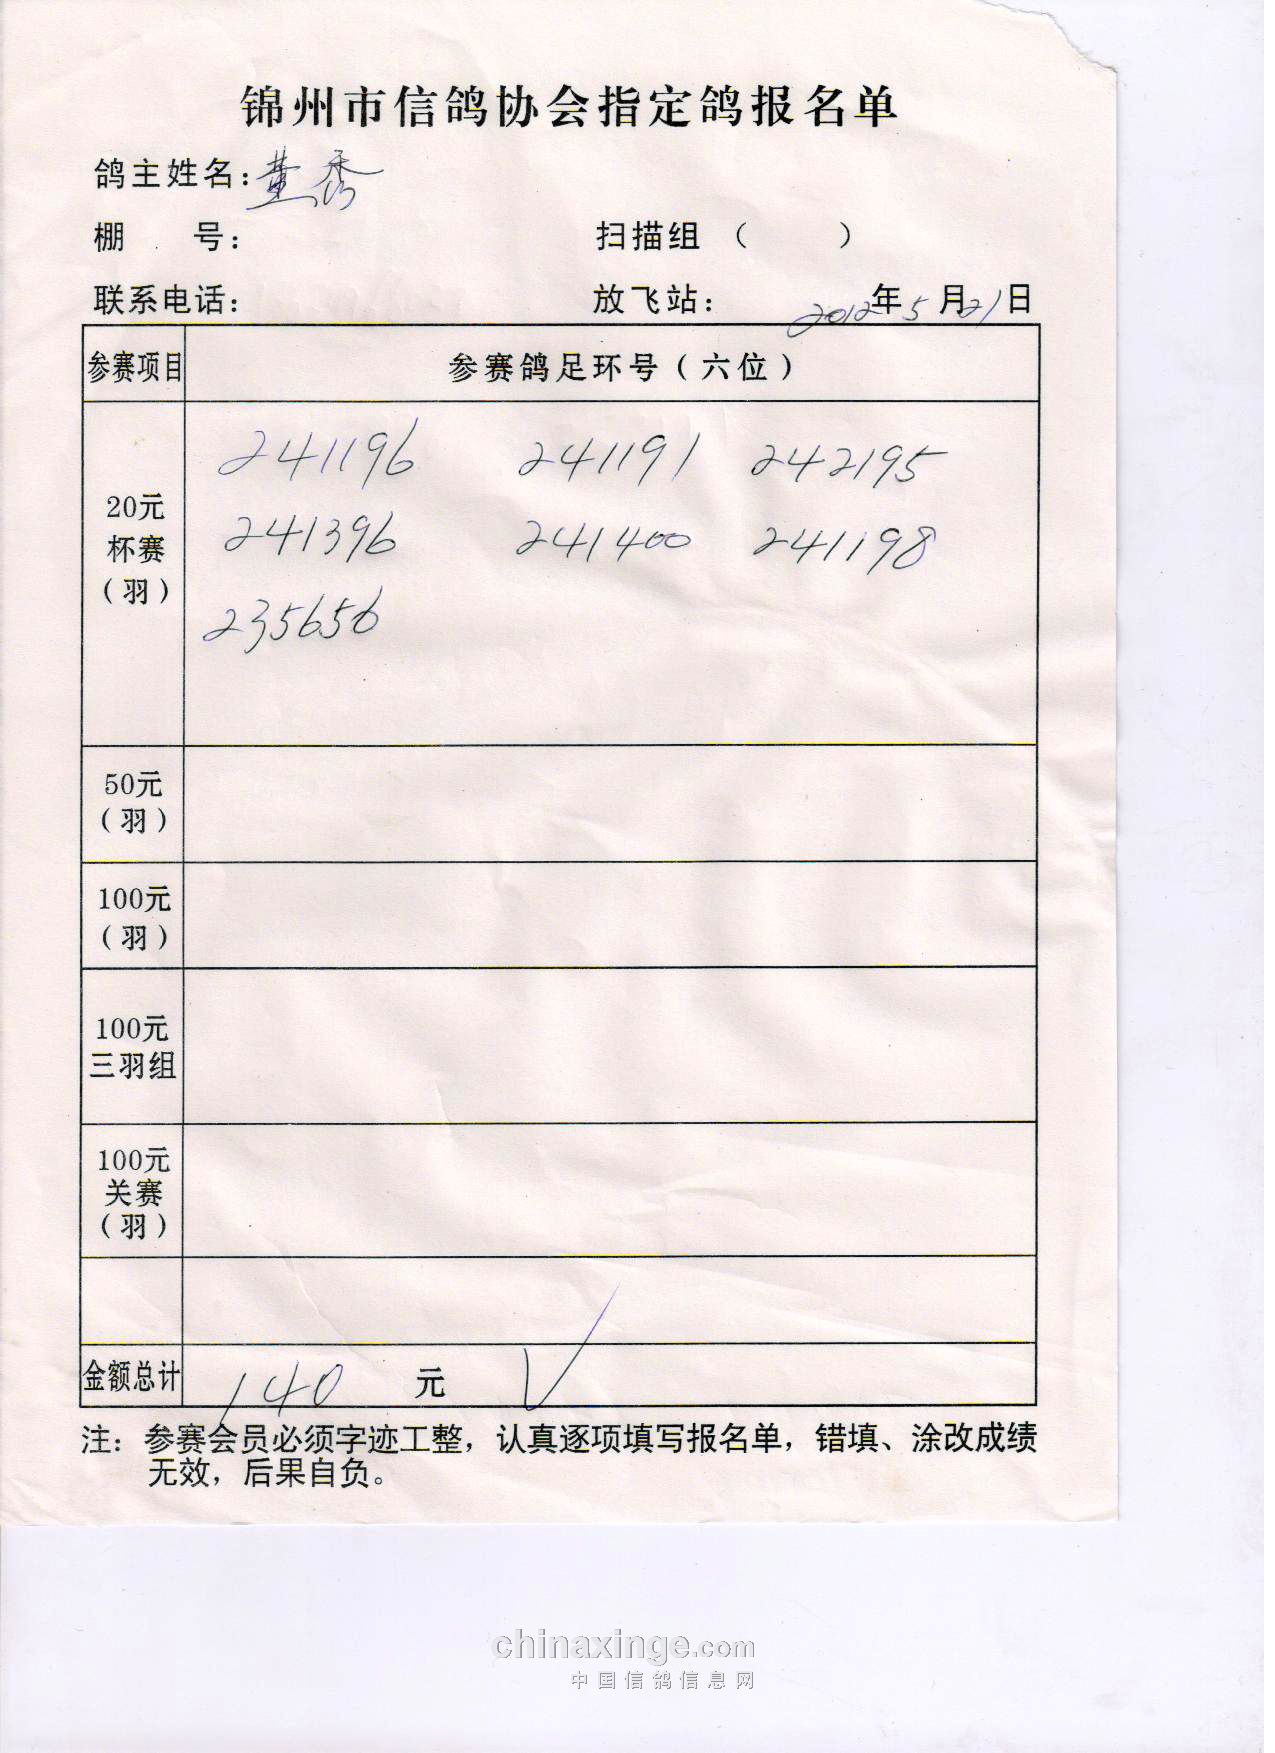 锦州市信鸽协会指定鸽报名单
鸽主姓名：董秀
棚 号： 扫描组 （ ）
联系电话： 放飞站： 2012年5月21日
参赛项目 参赛鸽足环号（六位）
20元
杯赛
（羽）
241196 241191 242195
241396 241400 241198
235656
50元
（羽）
100元
（羽）
100元
三羽组
100元
关赛
（羽）
金额总计 140 元
注：参赛会员必须字迹工整，认真逐项填写报名单，错填、涂改成绩
无效，后果自负。
chinaxinge.com
中国信鸽信息网